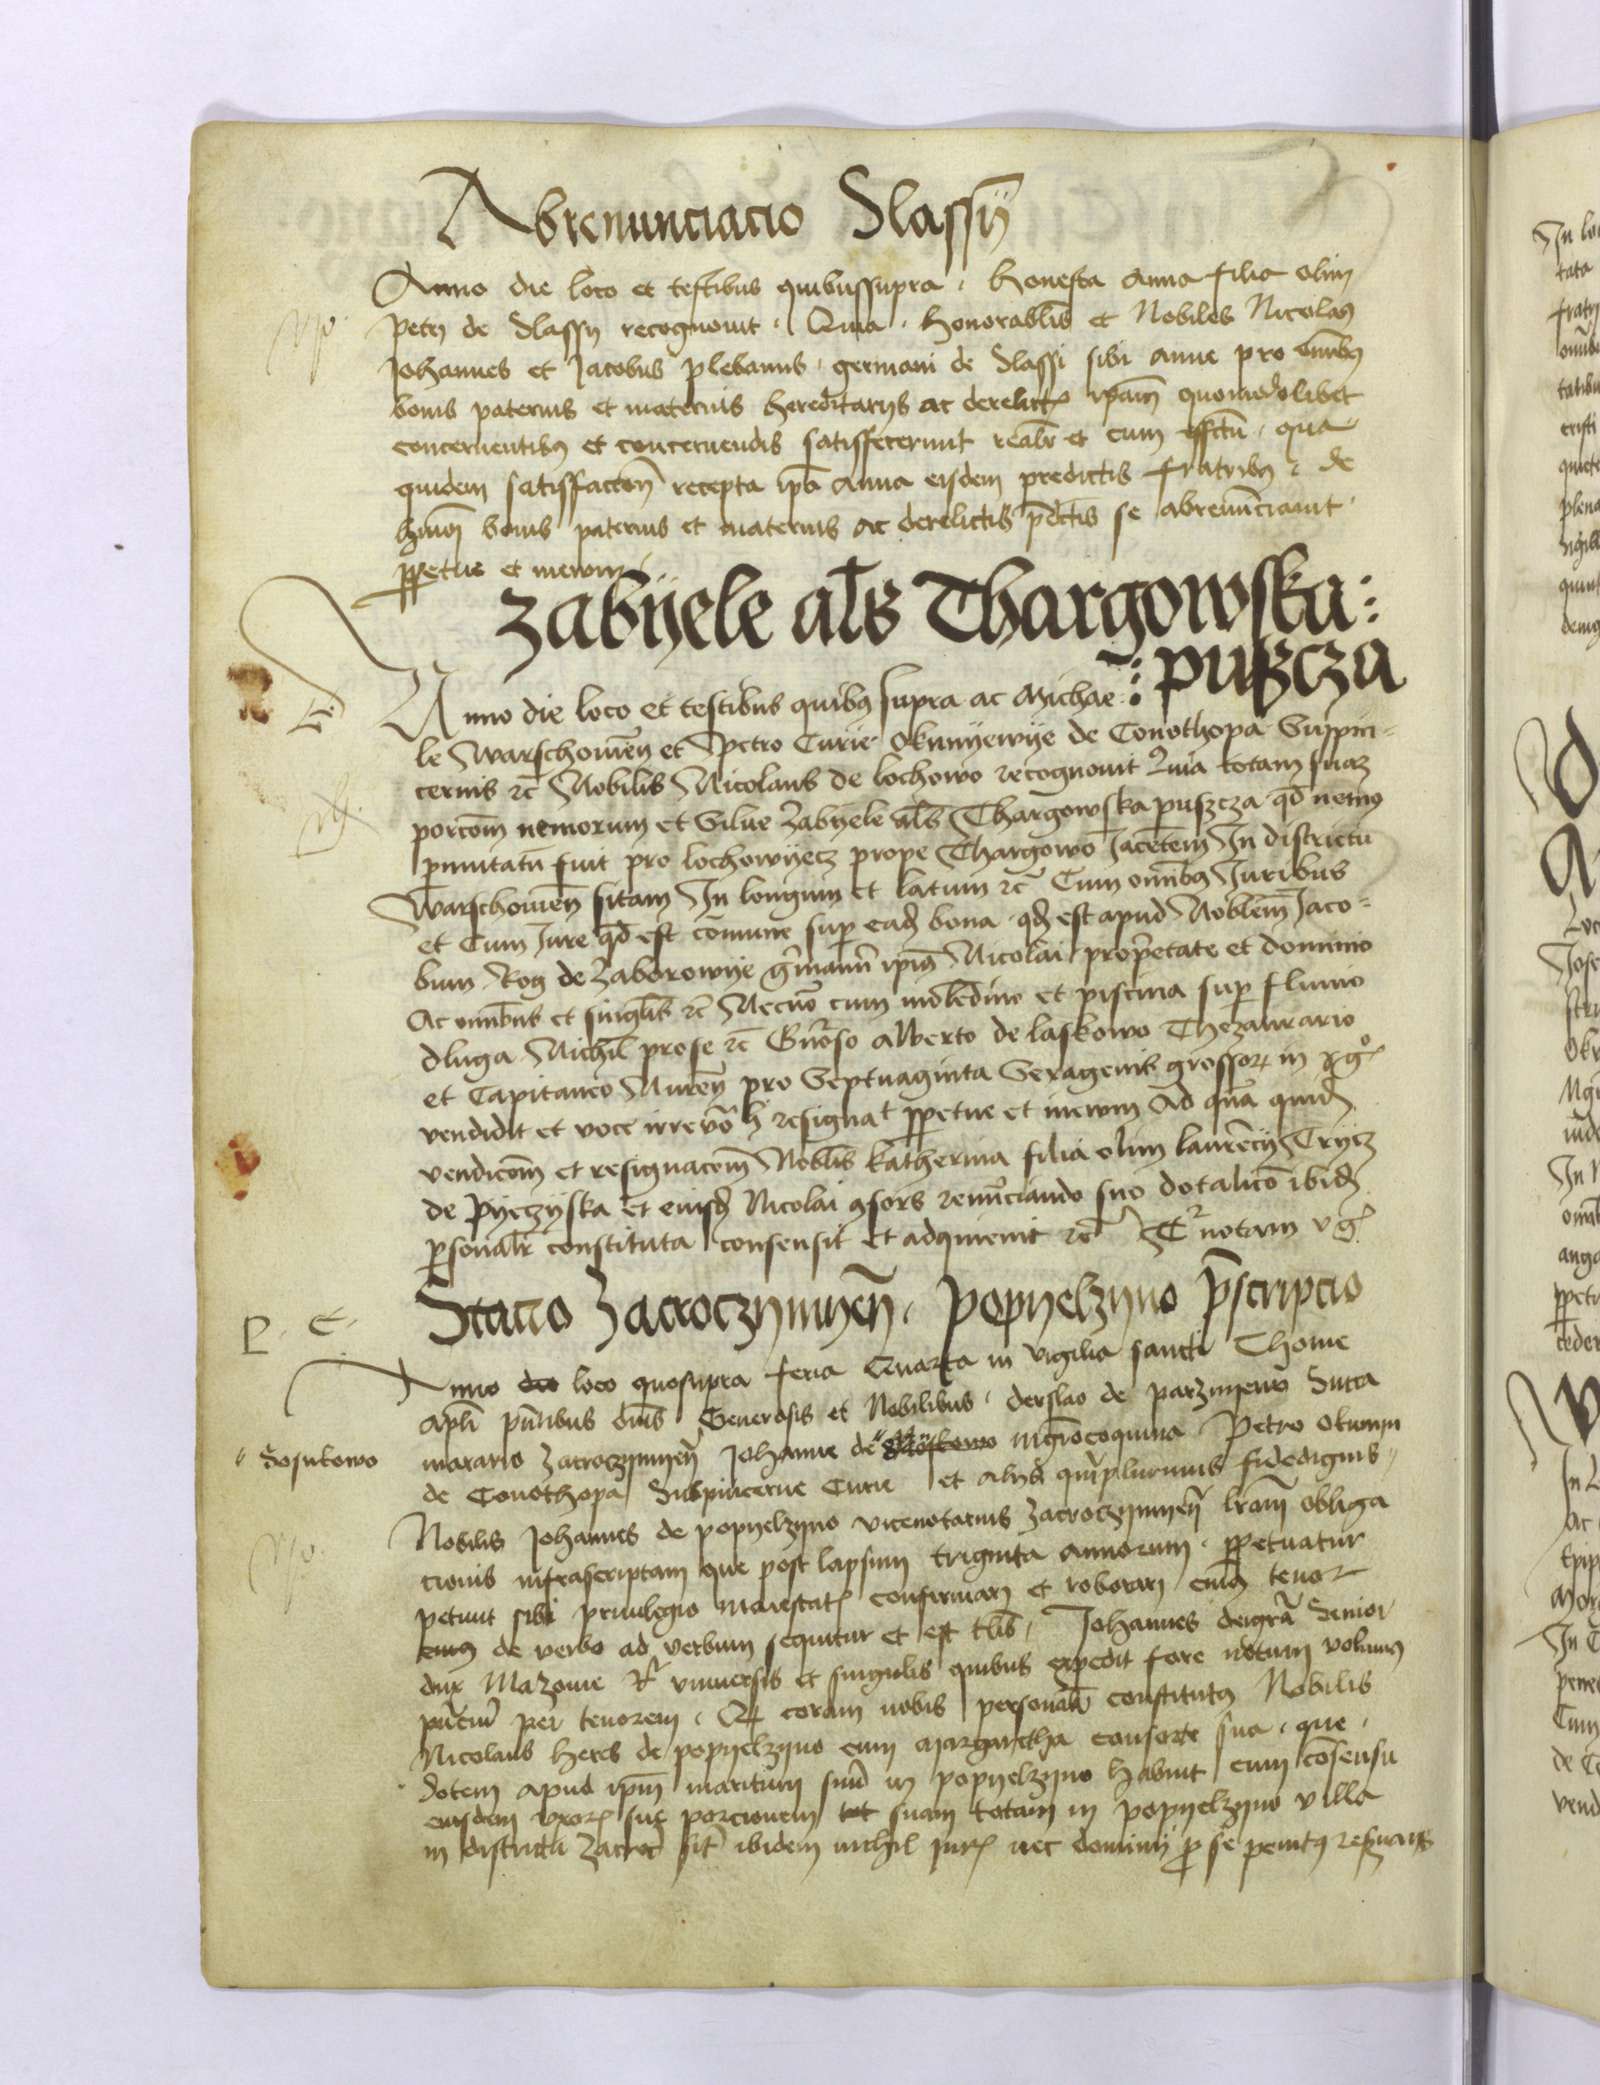 Abrenunciacio Slassÿ
Anno die loco et testibus quibussupra . Honesta Anna filia olim
petri de Slassy recognovit . Quia . Honorabilis et Nobiles Nicolaus
Johannes et Jacobus plebanus . germani de Slassi sibi Anne pro omnibus
bonis paternis et maternis hereditarys ac derelictis ipam quomodolibet
concernentibus et concernendis satisfecerunt realiter et cum effectu . qua
quidem satisfaccione recepta ipa Anna eisdem predictis fratribus . de
bonis paternis et maternis ac derelictis pdctis se abrenunciavit .
ppetue et in ewm .
Zabÿele als Thargowska :
: puszcza
Anno die loco et testibus quibus supra ac Michae :
le Warschowien et Petro Curie Okunÿewÿe de Conothopa Suppin=
cernis etc Nobilis Nicolaus de lochowo recognovit Quia totam suam
porcom nemorum et Silve Zabÿele als Thargowska puszcza qd nemus
pmutatu fuit pro lochowÿecz prope Thargowo Jacetem In districtu
Warschowien sitam In longum et latum etc Cum omnibus Juribus
et Cum Jure qd est comune sup eadem bona qd est apud Noblem Jaco=
bum Rog de Zaborowÿe germanum ipius Nicolai proprietate et dominio
Ac omnibus et singulis etc Necno cum molendino et piscina sup fluvio
dluga Nichil pro se etc Gnoso Alberto de laskowo Thezaurario
et Capitaneo Nuren pro Septuaginta Sexagenis grossor in
vendidit et voce resignat ppetue et in ewm Ad qua quidem
vendicom et resignacom Noblis Katherina filia olim laurecy Trycz
de Pÿeczÿska et eiusdem Nicolai consors renuciando suo dotalico ibidem
psonaliter constituta consensit et adquievit etc notam
Stacio Zacroczymyen . popyelzyno pscripcio
P . C .
Anno die loco quosupra feria Quarta in vigilia sancti Thome
Apli pntibus dnis Generosis et Nobilibus . derslao de parzmyewo Succa
merario Zacroczymyen Johanne de mgro coquina Petro Okunyn
" Sosukowo
de Conothopa Subpincerne Curie et alys qmplurimis fidedignis .
Nobilis Johannes de popyelzyno vicenotarius Zacroczymyen lram obliga
cionis infrascriptam que post lapsum triginta annorum . ppetuatur
petivit sibi privilegio maiestatis confirmari et roborari cuius tenor
de verbo ad verbum sequitur et est tlis . Johannes deigra Senior
dux Mazovie universis et singulis quibus expedit fore notum volumus
pnciu per tenorem . Q coram nobis personaliter constitutus Nobilis
Nicolaus heres de popyelzyno cum Margaretha consorte sua . que .
dotem apud ipm maritum suu in popyelzyno habuit cum cosensu
eiusdem uxoris sue porcionem tot suam totam in popyelzyno villa
in districtu Zacroc sit ibidem nichil juris nec dominy p se penitus reservans